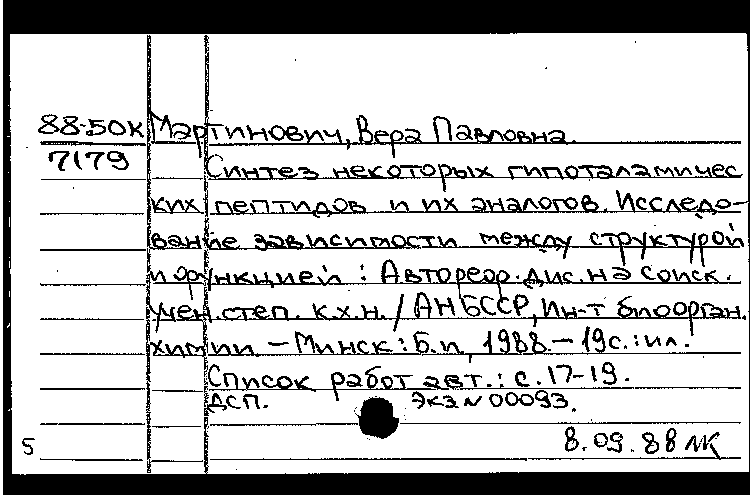 88-50К Мартинович, Вера Павловна.
7179 Синтез некоторых гипоталамичес
ких пептидов и их аналогов. Исследо-
вание зависимости между структурой
и функцией : Автореф. дис. на соиск.
учен. степ. к.х.н. / АН БССР, Ин-т биоорган.
химии. — Минск : Б.и, 1988. — 19с. : ил.
Список работ авт. : с. 17-19.
ДСП. Экз N 00093.
5 8.09.88